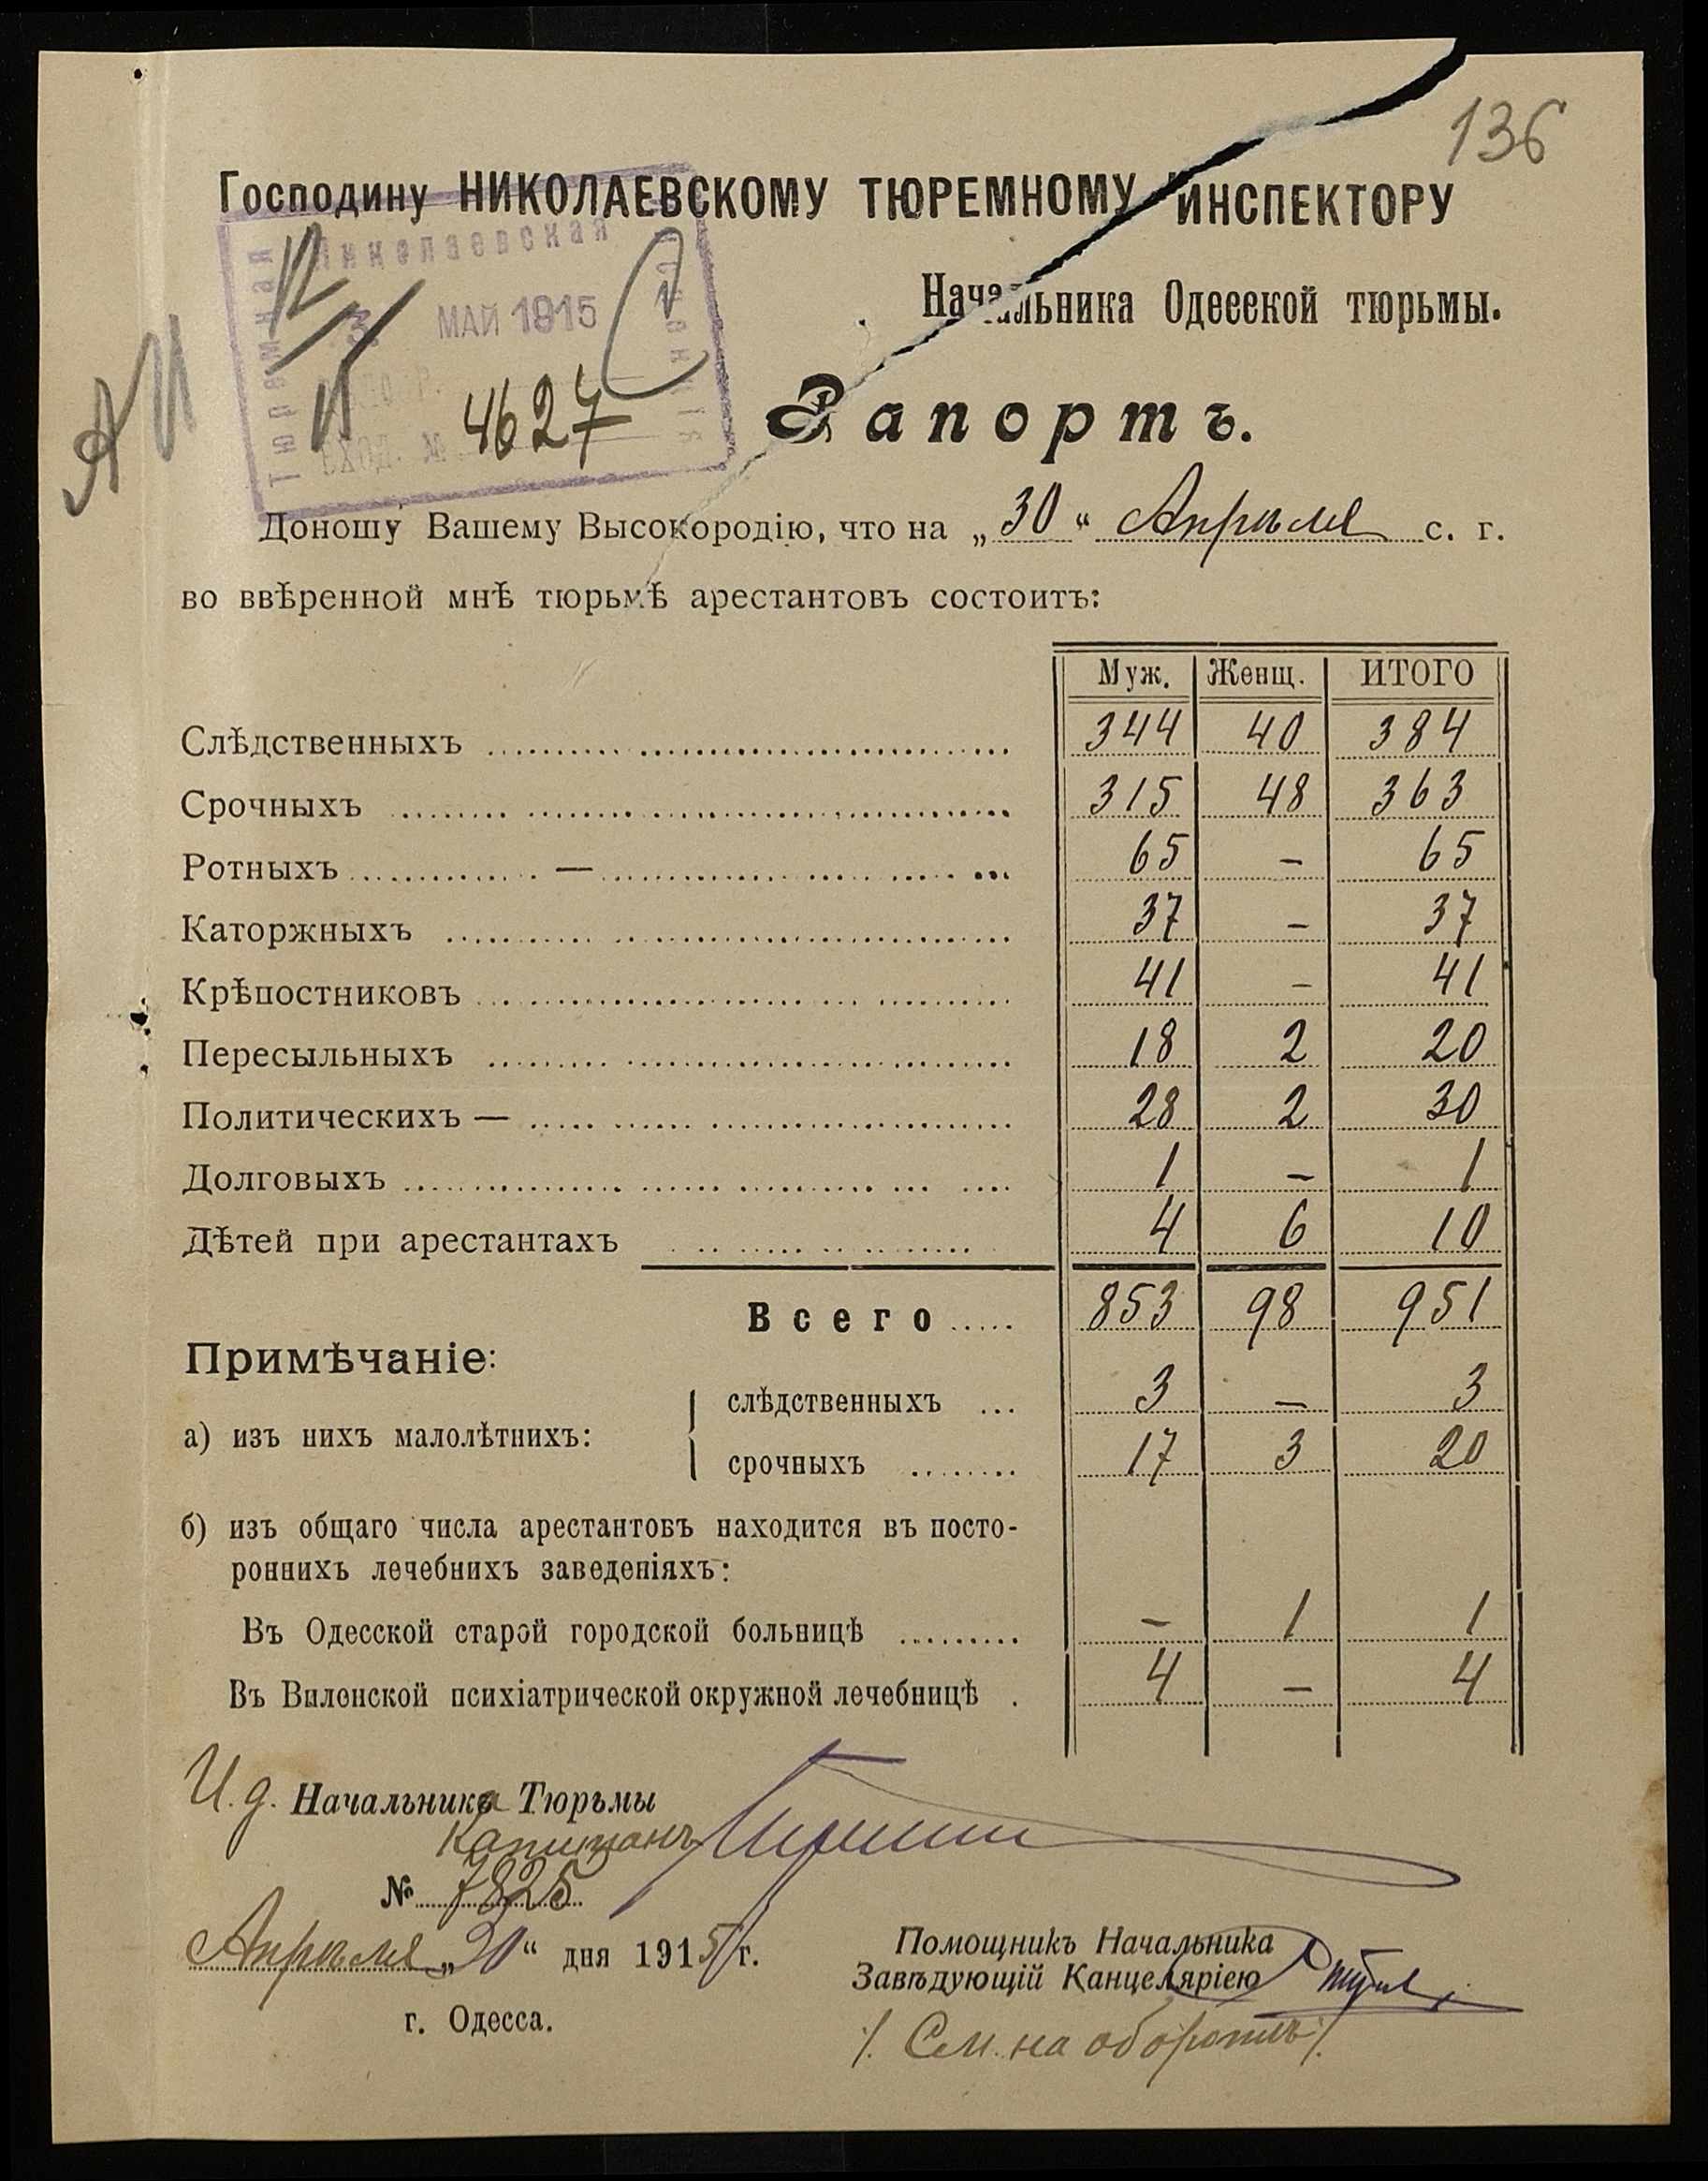 136
Господину НИКОЛАЕВСКОМУ ТЮРЕМНОМУ ИНСПЕКТОРУ
Николаевская
Тюремная
МАЙ 1915
ВХОД. № 4627
Начальника Одесской тюрьмы.
Рапортъ.
Доношу Вашему Высокородію, что на „30“ Апрѣля с. г.
во ввѣренной мнѣ тюрьмѣ арестантовъ состоитъ:
Муж. Женщ. ИТОГО
Слѣдственныхъ 344 40 384
Срочныхъ 315 48 363
Ротныхъ — 65 – 65
Каторжныхъ 37 – 37
Крѣпостниковъ 41 – 41
Пересыльныхъ 18 2 20
Политическихъ — 28 2 30
Долговыхъ 1 – 1
Дѣтей при арестантахъ 4 6 10
Всего 853 98 951
Примѣчаніе:
а) изъ нихъ малолѣтнихъ:
слѣдственныхъ 3 – 3
срочныхъ 17 3 20
б) изъ общаго числа арестантовъ находится въ посто-
роннихъ лечебнихъ заведеніяхъ:
Въ Одесской старой городской больницѣ – 1 1
Въ Виленской психіатрической окружной лечебницѣ 4 – 4
И.д. Начальника Тюрьмы
Капитанъ
№ 7825
Апрѣля „30“ дня 1915 г.
г. Одесса.
Помощникъ Начальника
Завѣдующій Канцеляріею
/. См. на оборотѣ /.